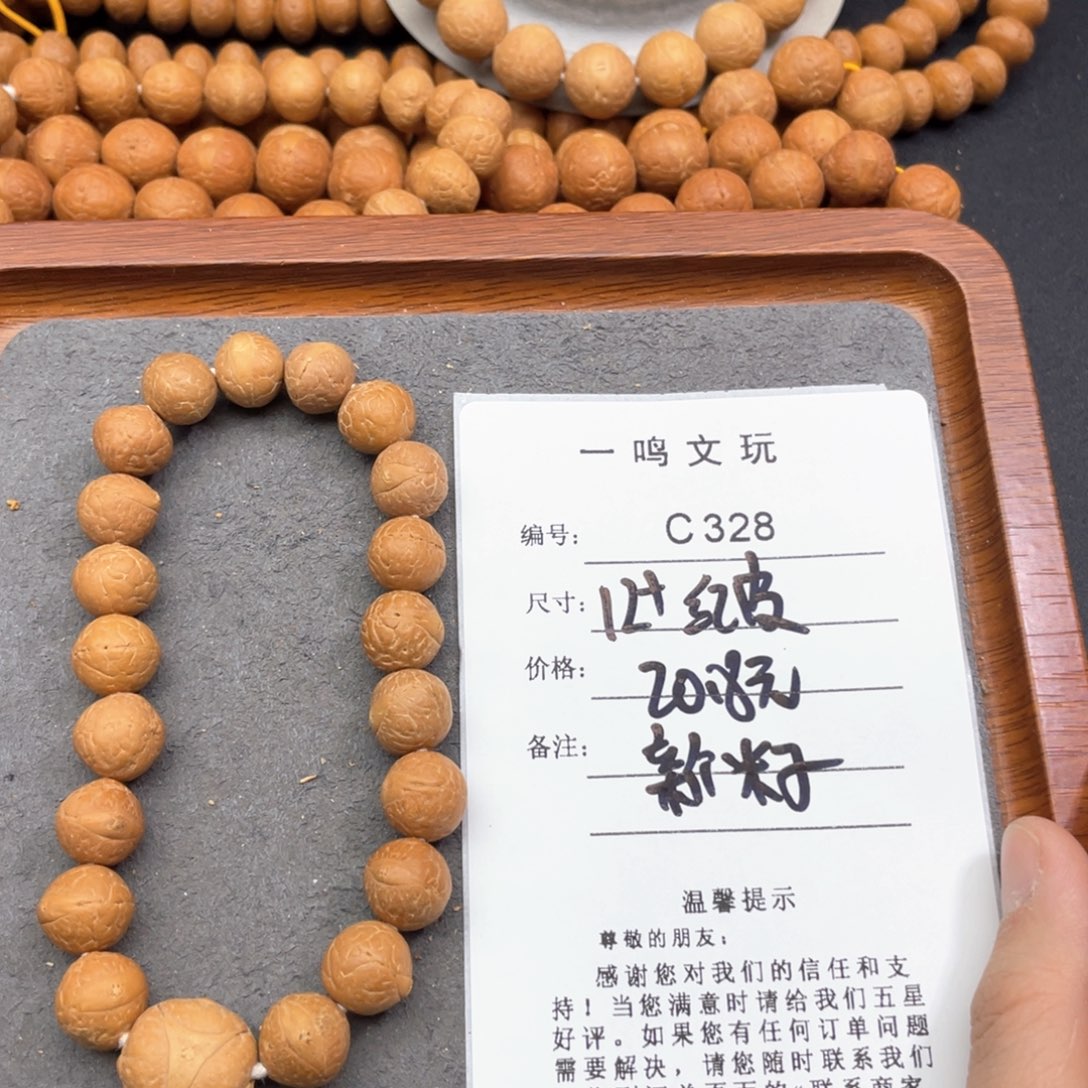 一鸣文玩
编号: C328
尺寸: 12+ 红皮
价格: 20.8元
备注: 新籽
温馨提示
尊敬的朋友:
感谢您对我们的信任和支
持!当您满意时请给我们五星
好评。如果您有任何订单问题
需要解决,请您随时联系我们
"联系商家